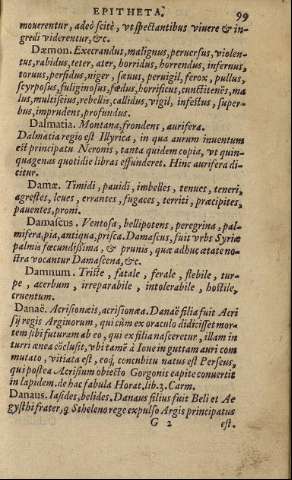 EPITHETA. 99
mouerentur, adeò scitè, vt spectantibus viuere & in-
gredi viderentur, &c.
Dæmon. Execrandus, malignus, peruersus, violen-
tus, rabidus, teter, ater, horridus, horrendus, infernus,
toruus, perfidus, niger, sæuus, peruigil, ferox, pullus,
scyrposus, fuliginosus, fœdus, horrificus, cunctitenēs, ma
lus, multiscius, rebellis, callidus, vigil, infestus, super-
bus, imprudens, profundus.
Dalmatia. Montana, frondens, aurifera.
Dalmatia regio est Illyrica, in qua aurum inuentum
est principatu Neronis, tanta quidem copia, vt quin-
quagenas quotidie libras effunderet. Hinc aurifera di-
citur.
Damæ. Timidi, pauidi, imbelles, tenues, teneri,
agrestes, leues, errantes, fugaces, territi, præcipites,
pauentes, proni.
Damascus. Ventosa, bellipotens, peregrina, pal-
mifera, pia, antiqua, prisca. Damascus, fuit vrbs Syriæ
palmis fœcundissima, & prunis, quæ adhuc ætate no-
stra vocantur Damascena, &c.
Damnum. Triste, fatale, ferale, flebile, tur-
pe, acerbum, irreparabile, intolerabile, hostile,
cruentum.
Danaë. Acrisioneis, acrisionæa. Danaë filia fuit Acri
sij regis Argiuorum, qui cùm ex oraculo didicisset mor-
tem sibi futuram ab eo, qui ex filia nasceretur, illam in
turri ænea cōclusit, vbi tamē à Ioue in guttam auri com
mutato, vitiata est, eoq́; concubitu natus est Perseus,
qui postea Acrisium obiecto Gorgonis capite conuertit
in lapidem. de hac fabula Horat. lib. 3. Carm.
Danaus. Iasides, belides. Danaus filius fuit Beli et Ae
gysthi frater, q Stheleno rege expulso Argis principatus
G 2 est.